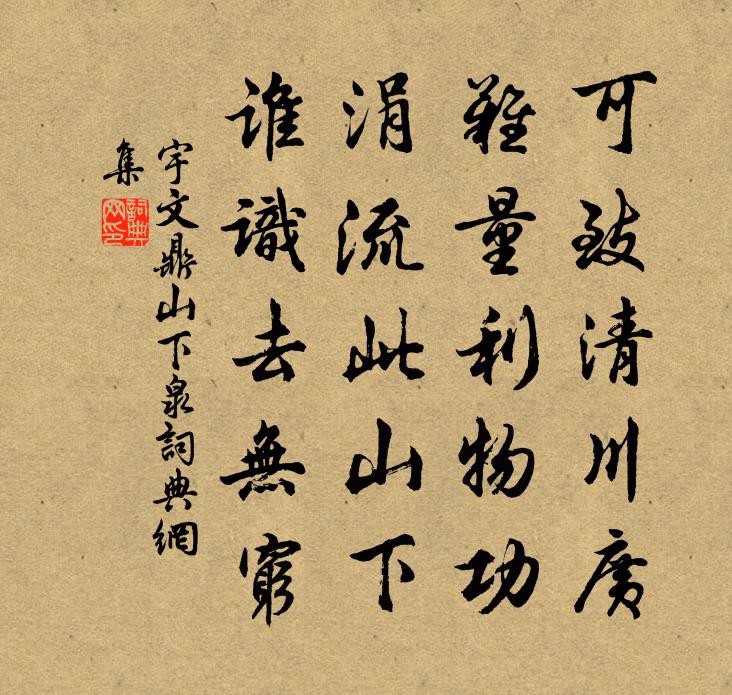 可致清川廣
難量利物功
涓流此山下
誰識去無窮
宇文鼎山下泉詞典網
集
詞典
网印